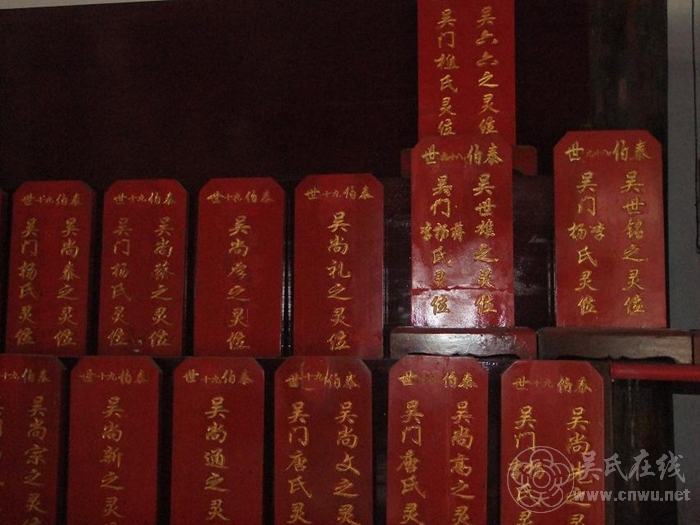 吴六六之灵位
吴门樵氏灵位
泰伯十八世
吴世雄之灵位
吴门蒋杨李氏灵位
吴世铭之灵位
吴门李杨氏灵位
泰伯十九世
吴尚泰之灵位
吴门杨氏灵位
泰伯十九世
吴尚
之灵位
吴门杨氏灵位
泰伯十九世
吴尚
之灵位
泰伯十九世
吴尚礼之灵位
泰伯十九世
吴尚宗之灵
泰伯十九世
吴尚新之灵
泰伯十九世
吴尚通之灵
泰伯十九世
吴尚文之灵
吴门唐氏灵
泰伯十九世
吴尚高之灵
吴门唐氏灵
泰伯十九世
吴尚
之灵
吴门
氏
吴氏在线
www.cnwu.net